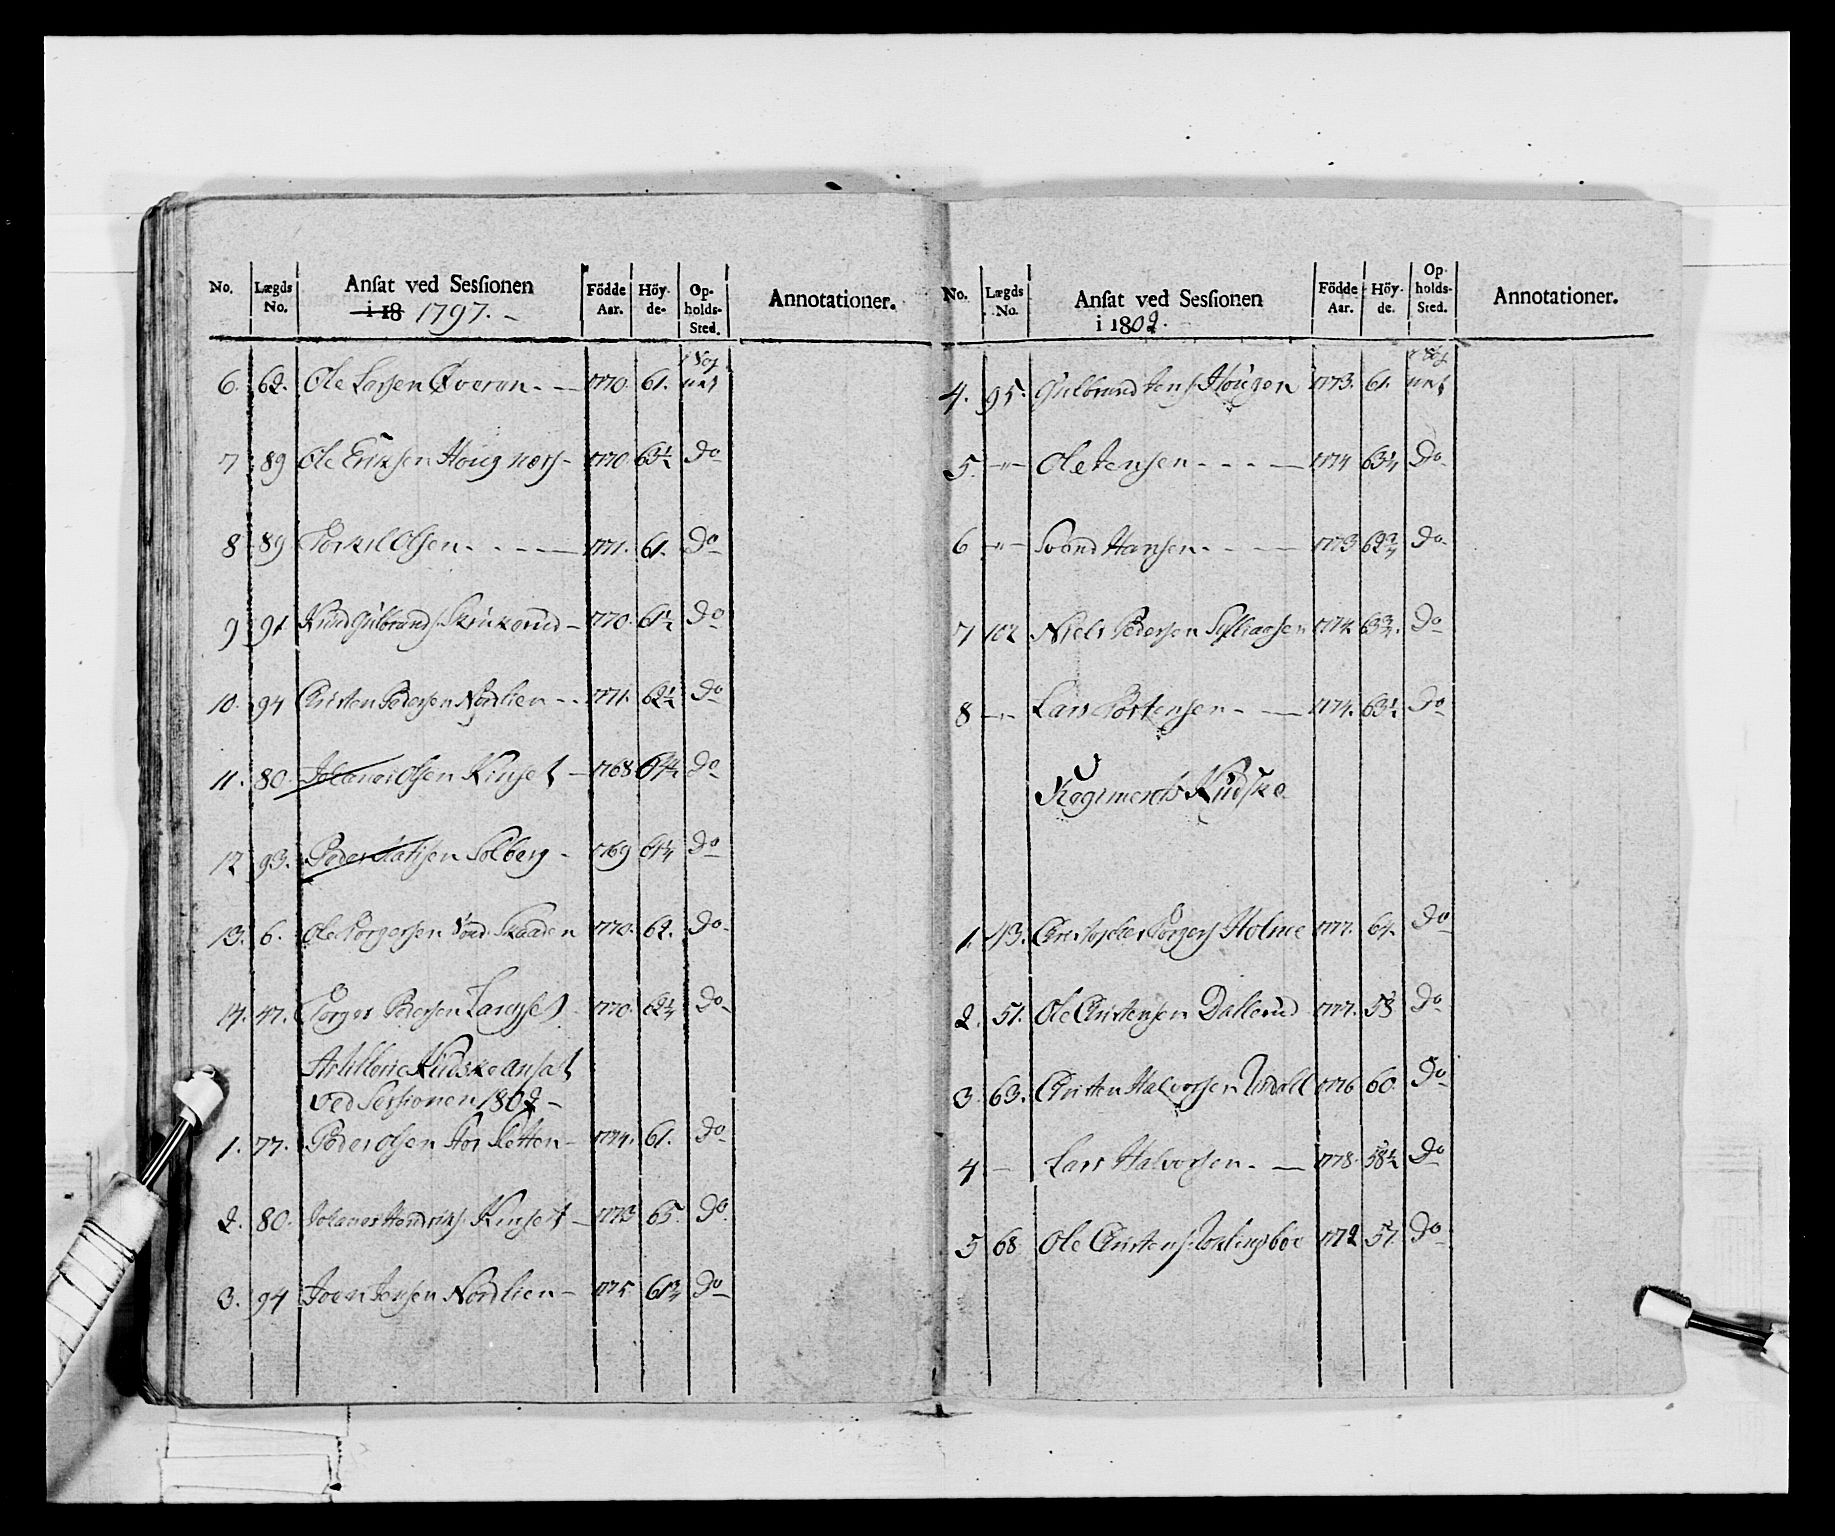 No. Lægds No. Ansat ved Sessionen i 18 1797. - Födde Aar. Höy- de. Op- holds- Sted. Annotationer.
6. 62. Ole Larsen Øveren - - 1770. 61.
7 89 Ole Eriksen Houg - 1770 63½ Do
8 89 Torkel Olsen - - - - 1771. 61. Do
9 91 Knud Gulbrands. - 1770. 61½ Do
10. 94 Christen Pedersen Nordlien - - 1771. 62½ Do
11. 80. Johanes Olsen Kinset - 1768 Do
12 93. Peder Solberg - 1769 Do
13. 6. Ole Torgersen Skaaden 1770. 62. Do
14. 47. Torger Pedersen Langset 1770. 62¼ Do
Artillerie Kudske ansat
ved Sessionen 1802 -
1. 77. Peder Olsen Stor Sletten - 1774. 61. Do
2. 80. Johanes Hendriks. Kinset - 1773 65. Do
3. 94 Joen Jensen Nordlien - 1775 61¾ Do
No. Lægds No. Ansat ved Sessionen i 1802. Födde Aar. Höy- de. Op- holds- Sted. Annotationer.
4. 95. Gulbrand Jens. Hougen 1773. 61.
5. -"- Ole Jensen - - - - 1774 63¼ Do
6 -"- Svend Hansen - - - 1773 62¾ Do
7 102 Niels Pedersen 1774 63¾. Do
8 -"- Lars Tostensen - - 1774. 63½ Do
Regiments Kudske
1. 43. Christopher Torgers. Holme 1777. 64. Do
2. 51. Ole Christensen Dallerud 1777. 58 Do
3. 63. Christen Halvorsen 1776 60. Do
4 - Lars Halvorsen - - 1778. 58½ Do
5 68 Ole Christens. 1772 57 Do